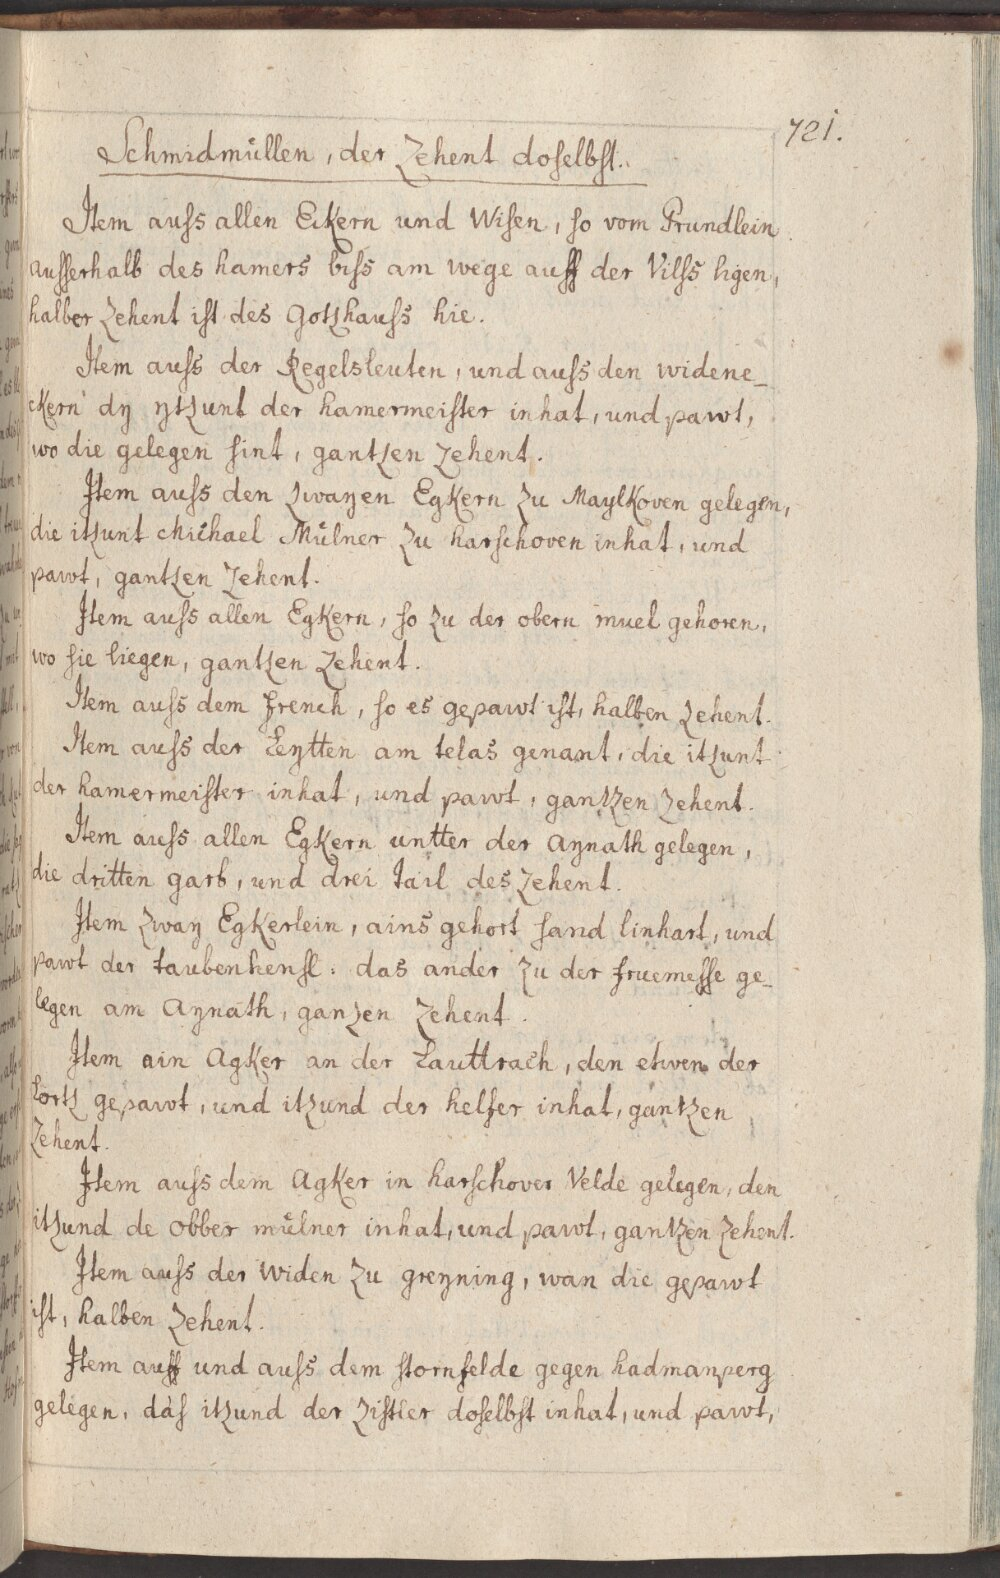 721.
Schmidmüllen, der Zehent doselbst.
Item auss allen Eckern und Wisen, so vom Prundlein
ausserhalb des hamers biss am wege auff der Vilss ligen,
halber Zehent ist des Gotzhauss hie.
Item auss der Regelsleuten, und auss den widene-
ckern dy ytzunt der hamermeister inhat, und pawt,
wo die gelegen sint, gantzen Zehent.
Item auss den zwayen Egkern zu Maylkoven gelegen,
die itzunt Michael Mülner zu harschoven inhat, und
pawt, gantzen Zehent.
Item auss allen Egkern, so zu der obern muel gehoren,
wo sie liegen, gantzen Zehent.
Item auss dem french, so es gepawt ist, halben Zehent.
Item auss der Leytten am telas genant, die itzunt
der hamermeister inhat, und pawt, gantzen Zehent.
Item auss allen Egkern untter der Aynath gelegen,
die dritten garb, und drei tail des Zehent.
Item zway Egkerlein, ains gehort sand linhart, und
pawt der taubenhensl: das ander zu der fruemesse ge-
legen am Aynath, ganzen Zehent.
Item ain Agker an der Lauttrach, den etwen der
Lortz gepawt, und itzund der helfer inhat, gantzen
Zehent.
Item auss dem Agker in harschover Velde gelegen, den
itzund de obber mülner inhat, und pawt, gantzen Zehent.
Item auss der Widen zu greyning, wan die gepawt
ist, halben Zehent.
Item auff und auss dem stornfelde gegen hadmanperg
gelegen, das itzund der Zistler doselbst inhat, und pawt,